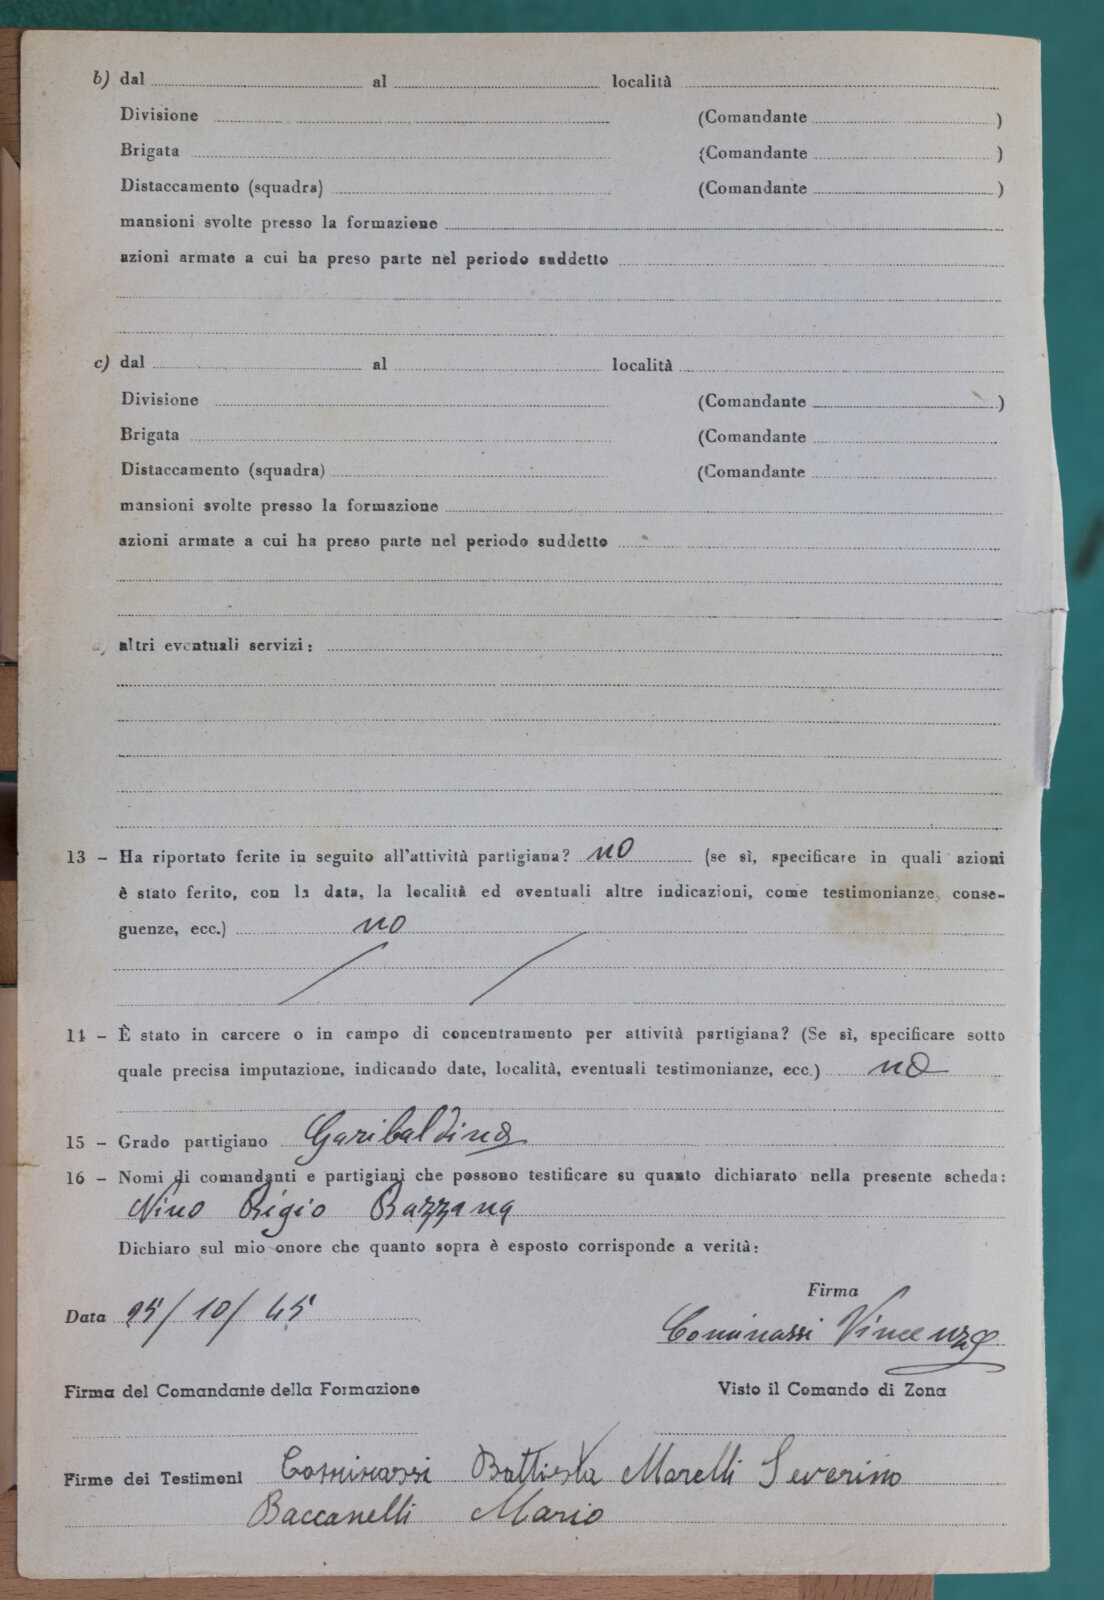 b) dal al località
Divisione (Comandante )
Brigata (Comandante )
Distaccamento (squadra) (Comandante )
mansioni svolte presso la formazione
azioni armate a cui ha preso parte nel periodo suddetto
c) dal al località
Divisione (Comandante )
Brigata (Comandante
Distaccamento (squadra) (Comandante
mansioni svolte presso la formazione
azioni armate a cui ha preso parte nel periodo suddetto
d) altri eventuali servizi:
13 - Ha riportato ferite in seguito all'attività partigiana? no (se sì, specificare in quali azioni
è stato ferito, con la data, la località ed eventuali altre indicazioni, come testimonianze, conse-
guenze, ecc.) no
14 - È stato in carcere o in campo di concentramento per attività partigiana? (Se sì, specificare sotto
quale precisa imputazione, indicando date, località, eventuali testimonianze, ecc.) no
15 - Grado partigiano Garibaldino
16 - Nomi di comandanti e partigiani che possono testificare su quanto dichiarato nella presente scheda:
Nino Bigio Bazzana
Dichiaro sul mio onore che quanto sopra è esposto corrisponde a verità:
Firma
Data 25/10/45 Cominassi Vincenzo
Firma del Comandante della Formazione Visto il Comando di Zona
Firme dei Testimoni Cominassi Battista Marelli Severino
Baccanelli Mario